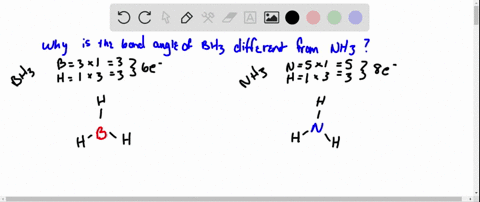 Why is the bond angle of BH3 different from NH3 ?
BH3 B = 3 x 1 = 3 } 6e-
H = 1 x 3 = 3
NH3 N = 5 x 1 = 5 } 8e-
H = 1 x 3 = 3
H
H B H
H
H N H